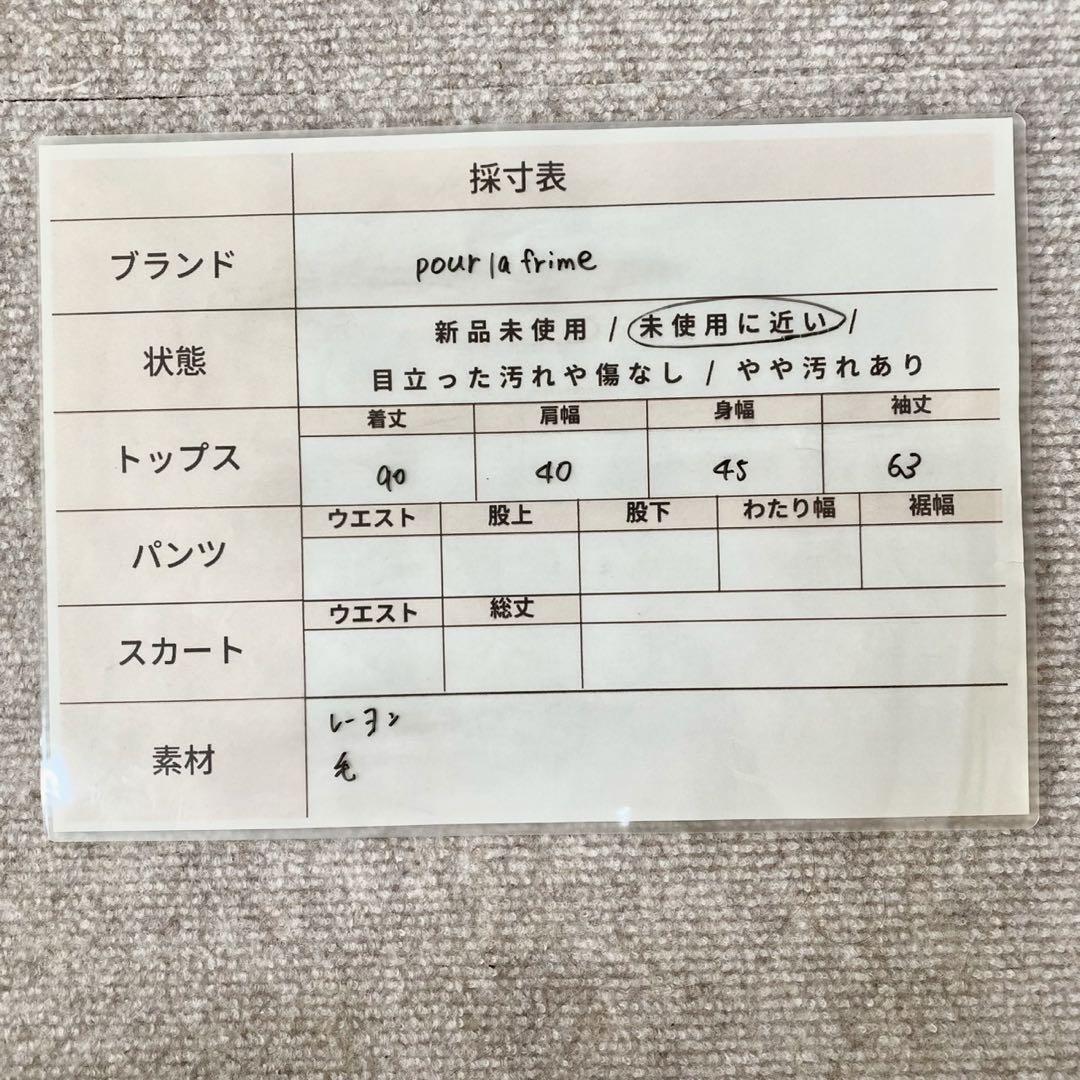 採寸表
ブランド pour la frime
新品未使用 / 未使用に近い /
状態
目立った汚れや傷なし / やや汚れあり
着丈 肩幅 身幅 袖丈
トップス
90 40 45 63
ウエスト 股上 股下 わたり幅 裾幅
パンツ
ウエスト 総丈
スカート
レーヨン
素材
毛